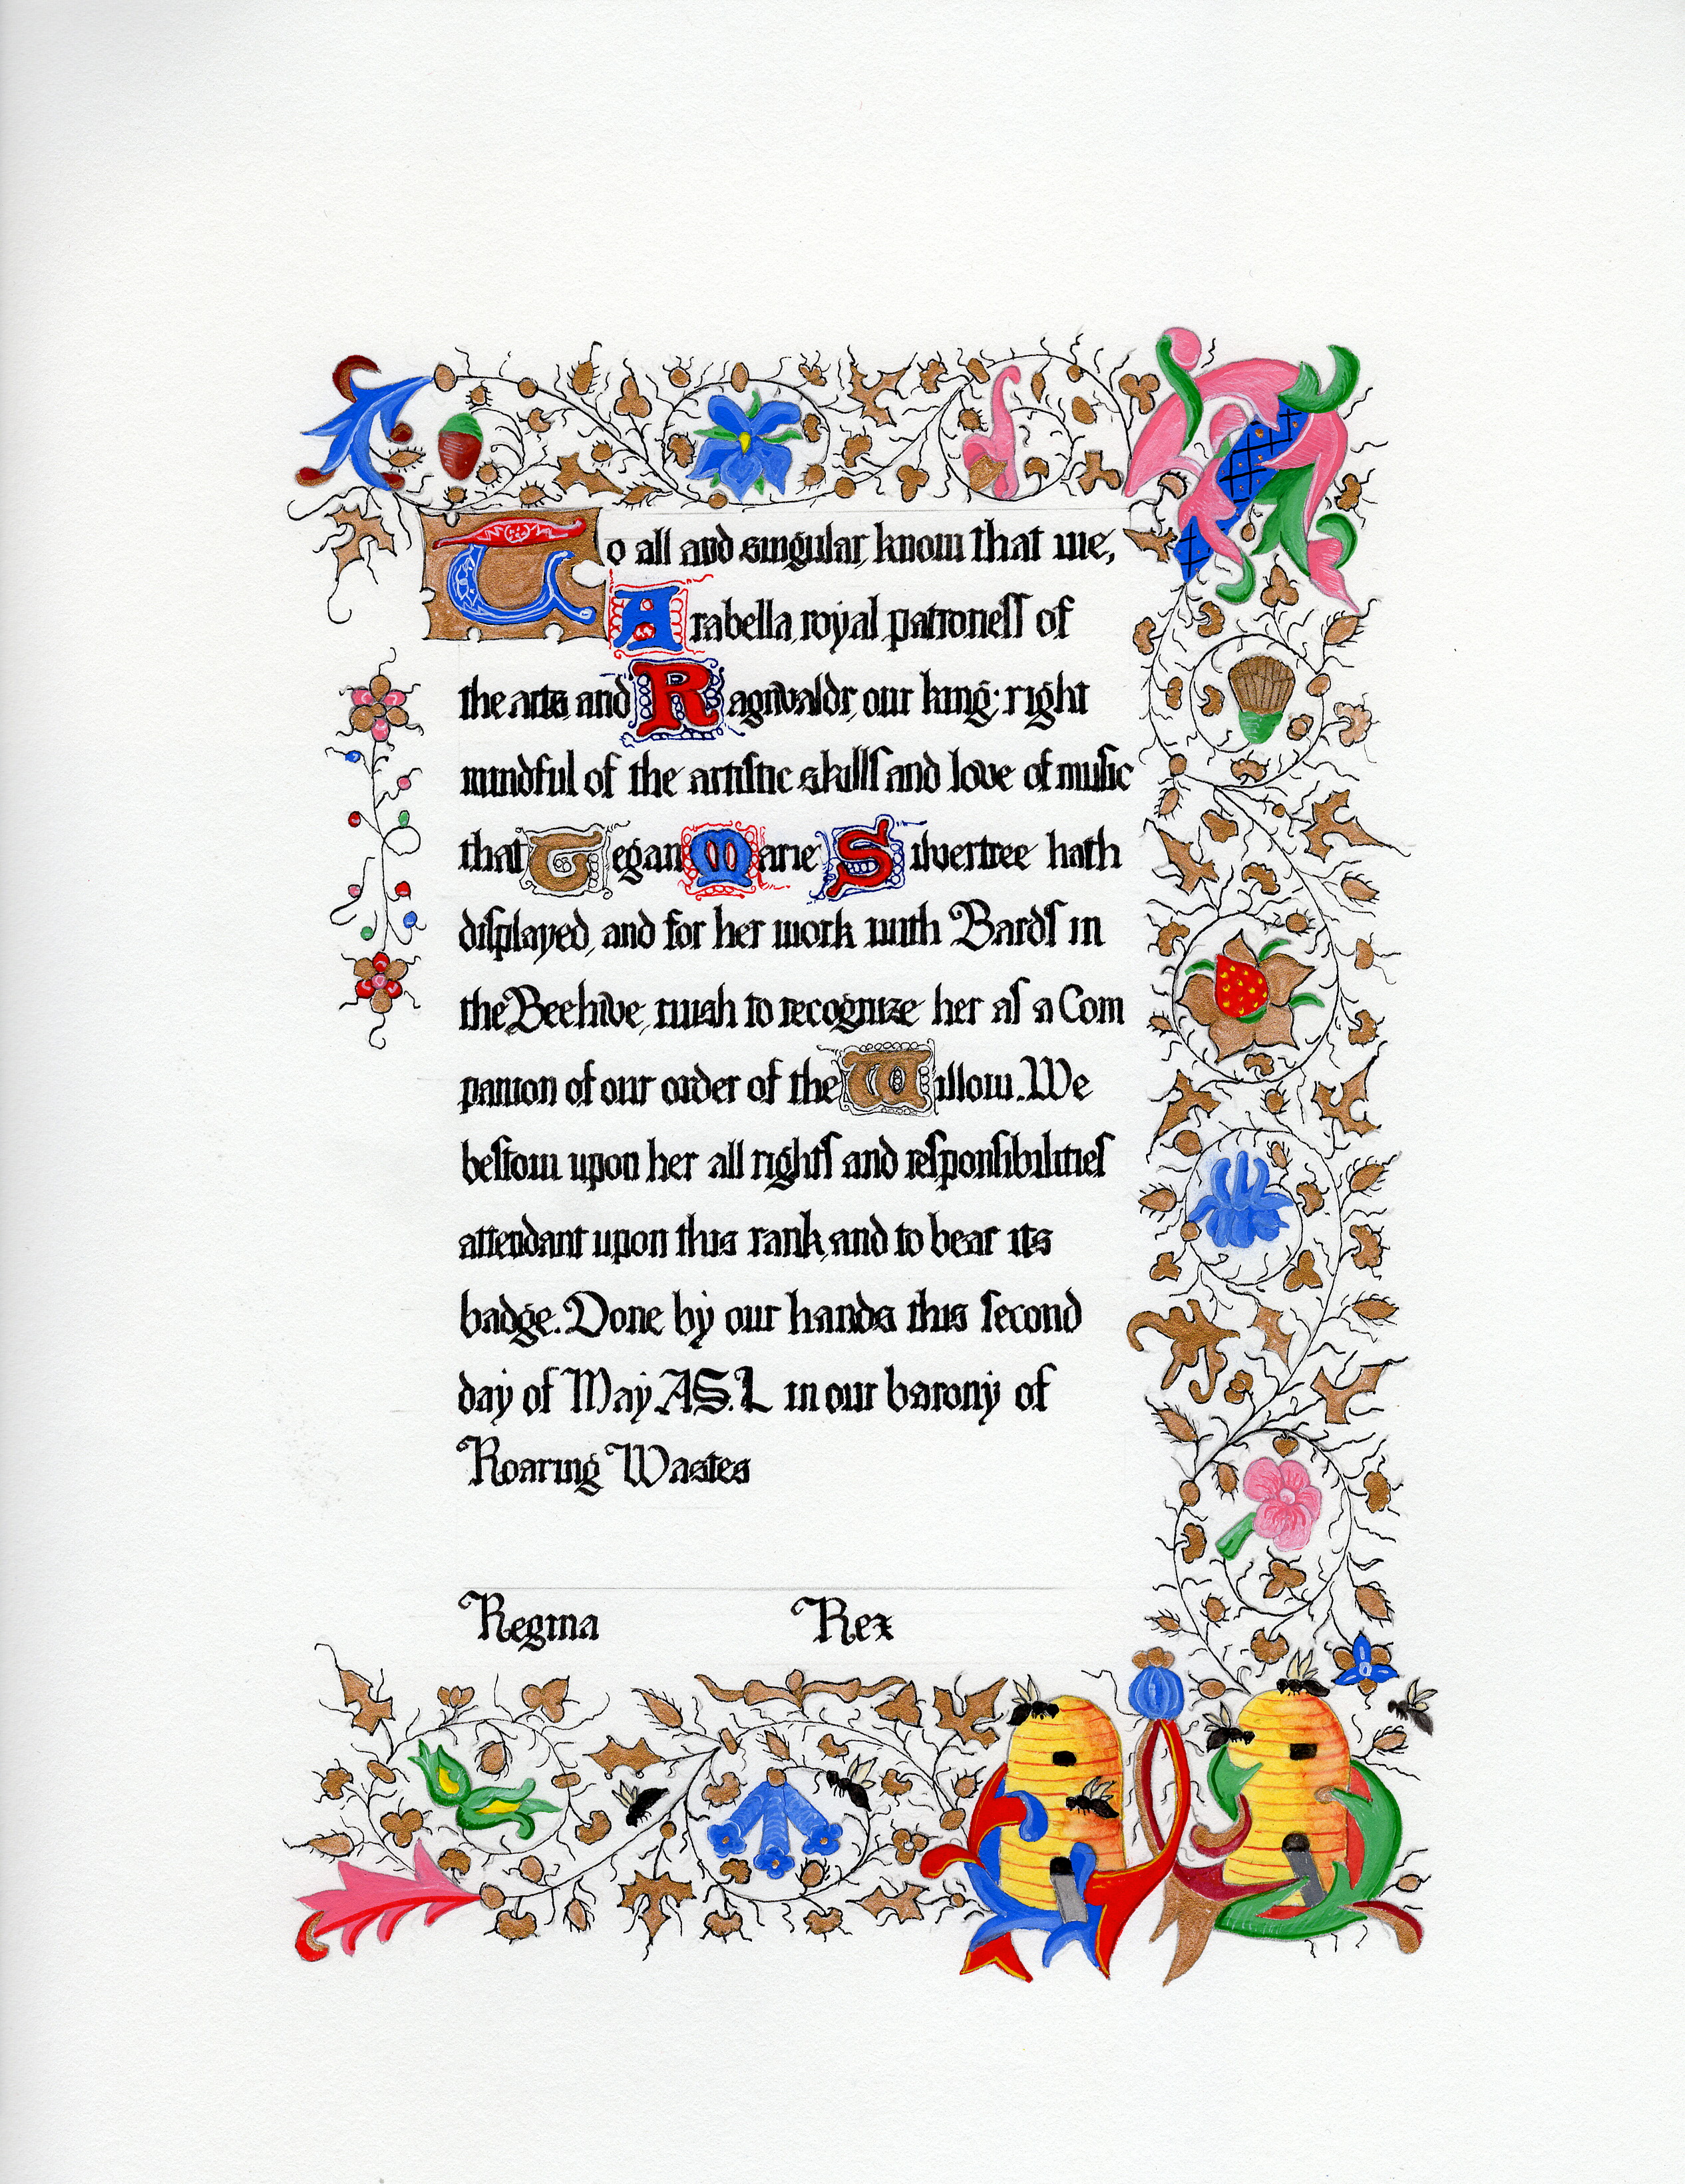 To all and singular, know that we,
Arabella, royal patroneſſ of
the arts, and Ragnvaldr, our king: right
mindful of the artiſtic skillſ and love of muſic
that Tegan Marie Silvertree hath
diſplayed, and for her work with Bardſ in
the Beehive, wish to recognize her aſ a Com
panion of our order of the Willow. We
beſtow upon her all rightſ and reſponſibilitieſ
attendant upon this rank, and to bear its
badge. Done by our hands this ſecond
day of May A.S. L in our barony of
Roaring Wastes
Regina Rex